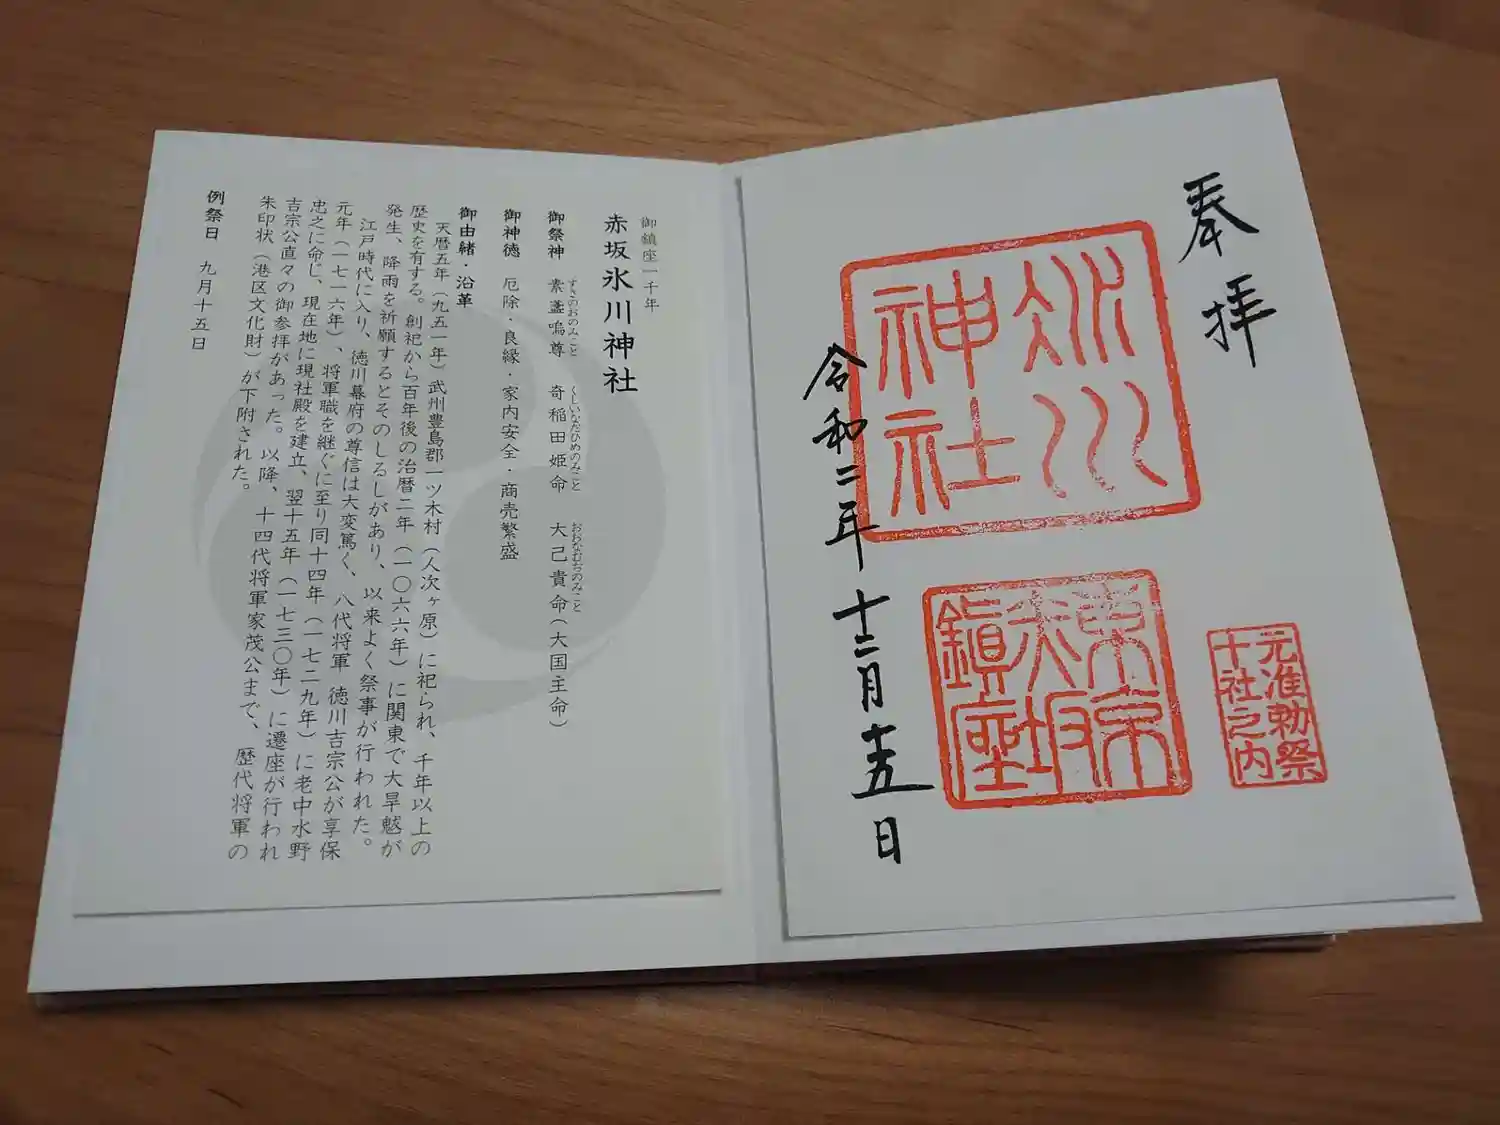 奉拝
氷川
神社
元准勅祭
十社之内
東京
赤坂
鎮座
令和二年十二月十五日
御鎮座一千年
赤坂氷川神社
御祭神 素盞嗚尊 奇稲田姫命 大己貴命(大国主命)
すさのおのみこと くしいなだひめのみこと おおなむぢのみこと
御神徳 厄除・良縁・家内安全・商売繁盛
御由緒・沿革
天暦五年(九五一年)武州豊島郡一ツ木村(人次ヶ原)に祀られ、千年以上の
歴史を有する。創祀から百年後の治暦二年(一〇六六年)に関東で大旱魃が
発生、降雨を祈願するとそのしるしがあり、以来よく祭事が行われた。
江戸時代に入り、徳川幕府の尊信は大変篤く、八代将軍 徳川吉宗公が享保
元年(一七一六年)、将軍職を継ぐに至り同十四年(一七二九年)に老中水野
忠之に命じ、現在地に現社殿を建立、翌十五年(一七三〇年)に遷座が行われ
吉宗公直々の御参拝があった。以降、十四代将軍家茂公まで、歴代将軍の
朱印状(港区文化財)が下附された。
例祭日 九月十五日